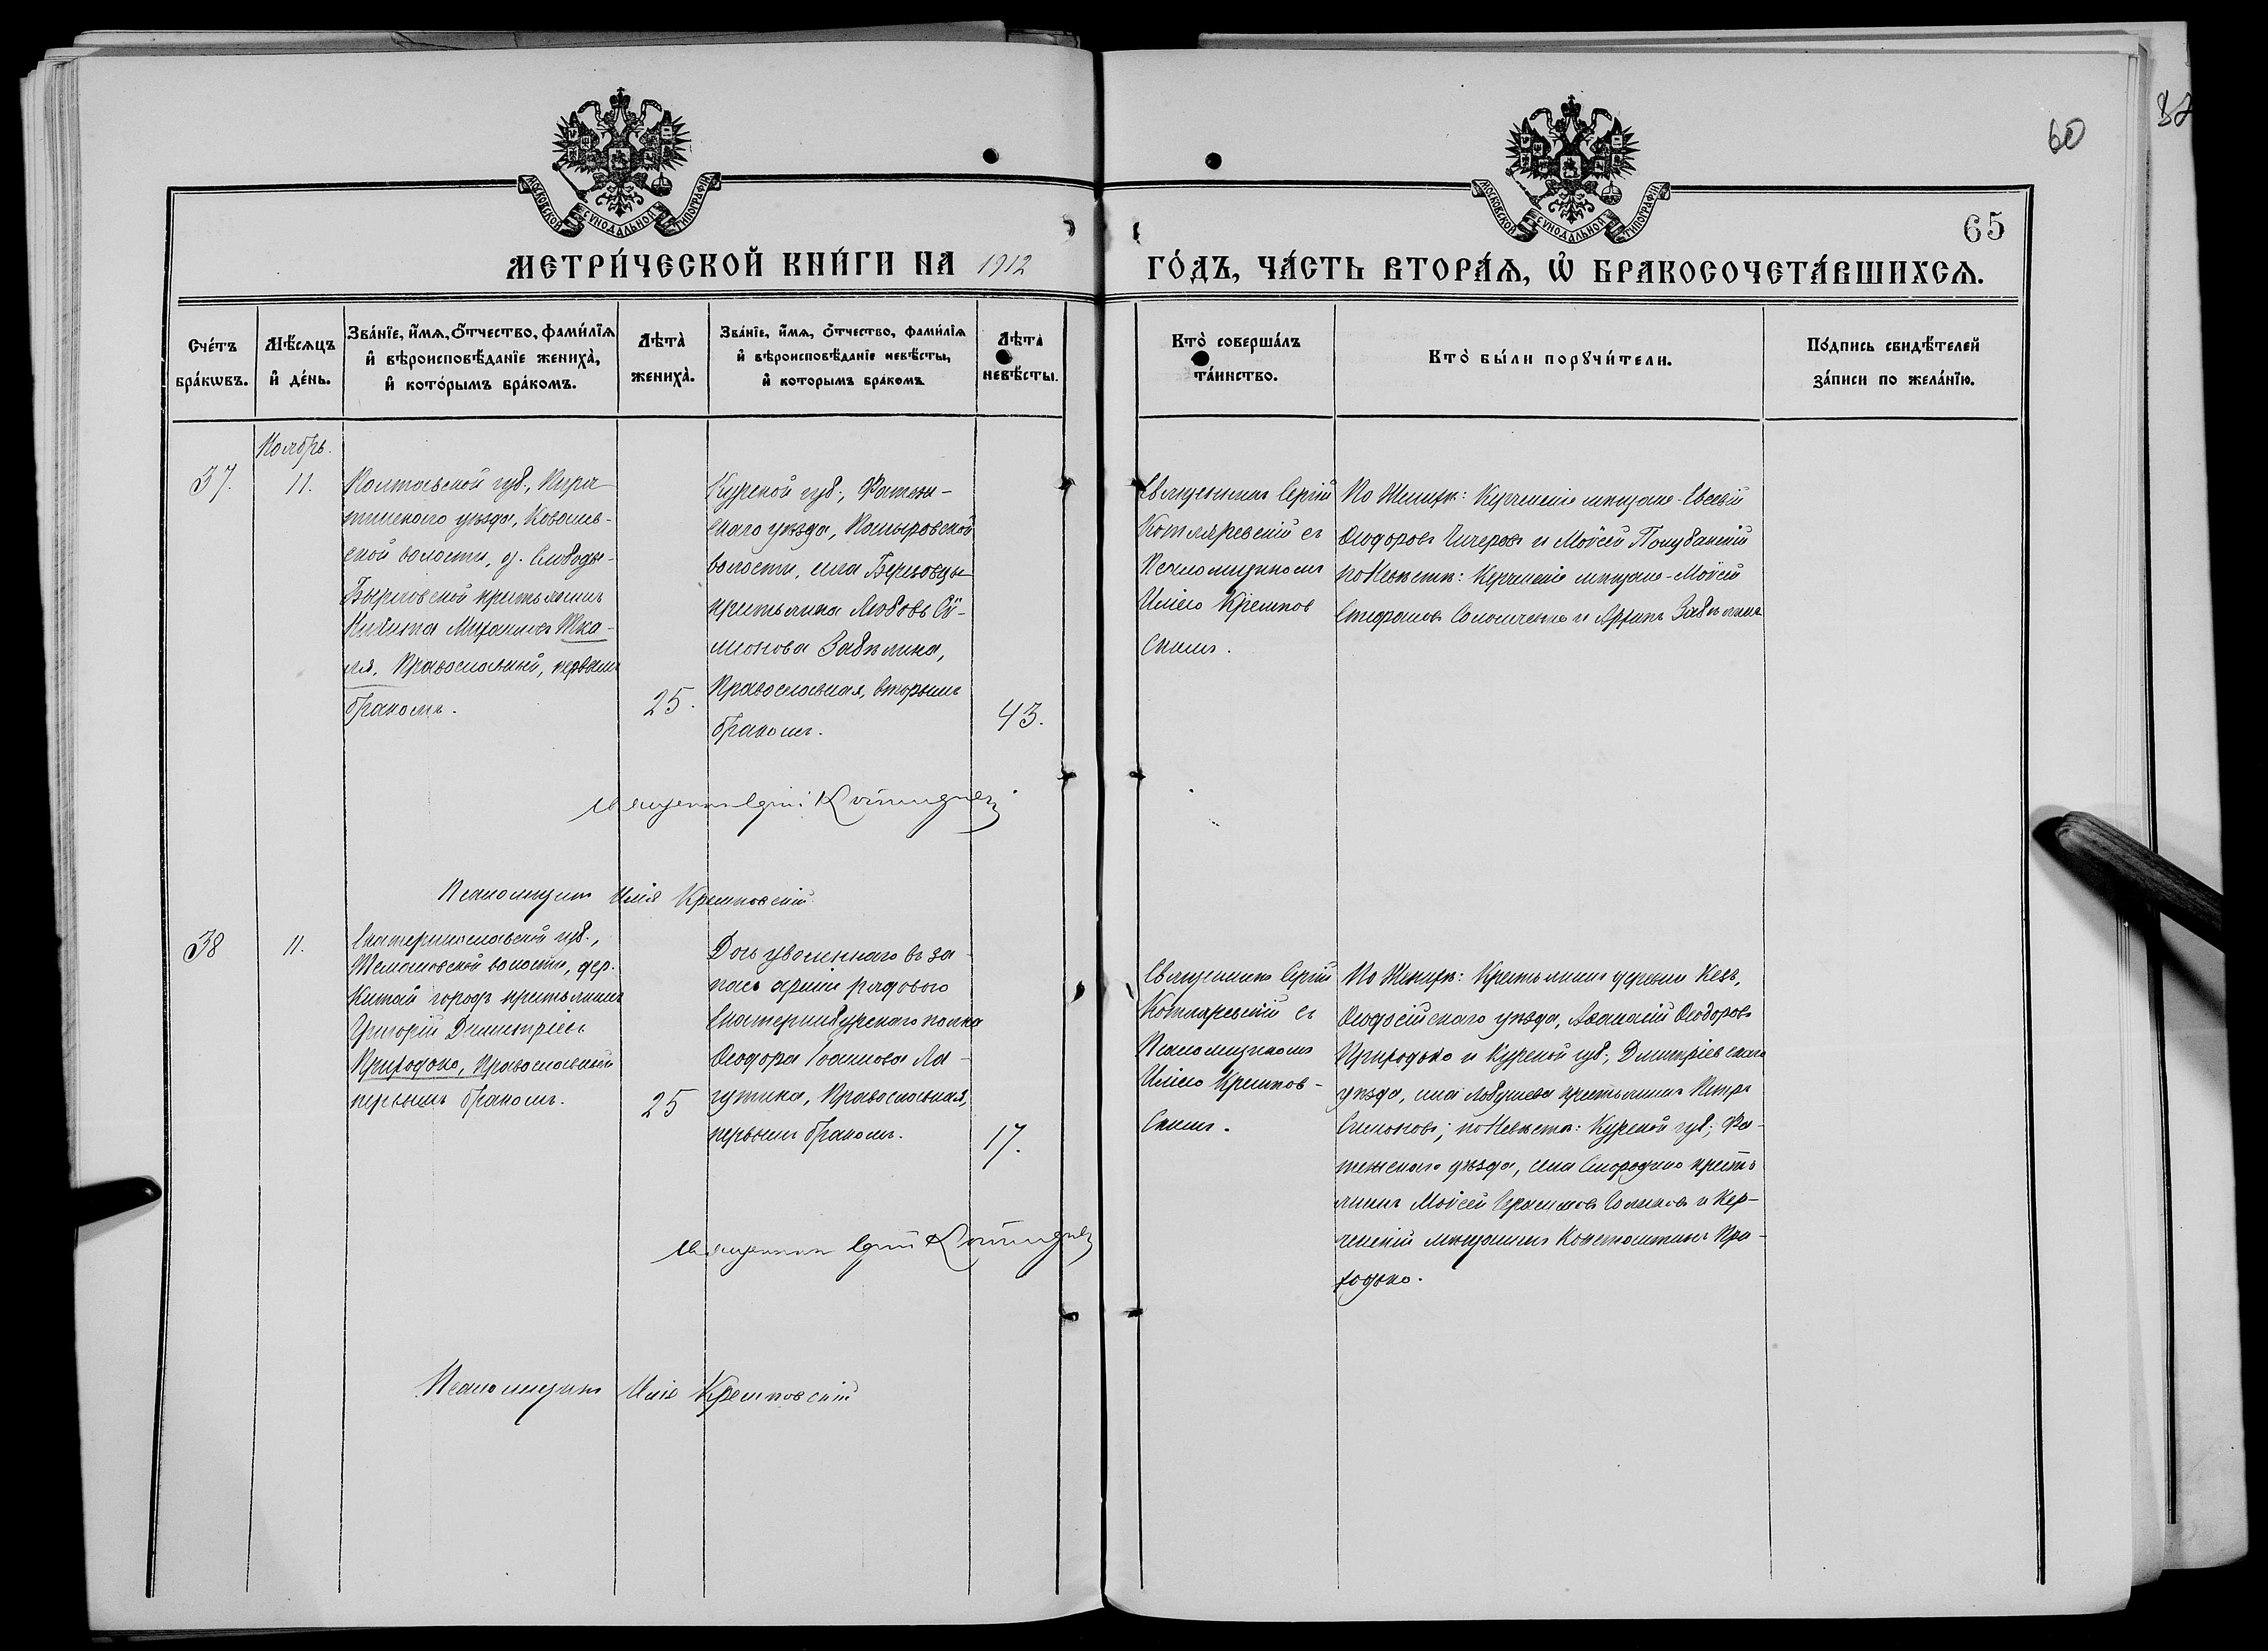 60
65
МОСКОВСКОЙ СѴНОДАЛЬНОЙ ТИПОГРАФІИ
МОСКОВСКОЙ СѴНОДАЛЬНОЙ ТИПОГРАФІИ
МЕТРИ́ЧЕСКОЙ КНИ́ГИ НА 1912
ГО́ДЪ, ЧА́СТЬ ВТОРА́Ѧ, Ѽ БРАКОСОЧЕТА́ВШИХСѦ.
Сче́тъ
бра́кѡвъ.
Мѣ́сѧцъ
и҆ де́нь.
Зва́нїе, и҆́мѧ, ѻ҆́тчество, фами́лїѧ
и҆ вѣроисповѣ́данїе жениха̀,
и҆ кото́рымъ бра́комъ.
Лѣта̀
жениха̀.
Зва́нїе, и҆́мѧ, ѻ҆́тчество, фами́лїѧ
и҆ вѣроисповѣ́данїе невѣ́сты,
и҆ которымъ бра́комъ.
Лѣта̀
невѣ́сты.
Кто̀ соверша́лъ
та́инство.
Кто̀ бы́ли порꙋчи́тели.
По́дпись свидѣ́телей
за́писи по жела́нїю.
Ноябрь.
37.
11.
Полтавской губ., Пиря-
тинскаго уѣзда, Ковалев-
ской волости, д. Слободы-
крестьянинъ
Никита Михаиловъ Тка-
ля, Православный, первымъ
бракомъ.
25.
Курской губ., Фатеж-
скаго уѣзда,
волости, села Березовца
крестьянка Любовь Си-
монова Забѣлина,
Православная, вторымъ
бракомъ.
43.
Священникъ Сергій
Котляревскій съ
Псаломщикомъ
Иліею Кремпов
скимъ.
По Женихѣ: Керченскіе мѣщане - Евсевій
Ѳеодоровъ Чичеровъ и Моисей
по Невѣстѣ: Керченскіе мѣщане - Моисей
Стефановъ и Забѣлинъ
Священникъ Сергій Котляревскій
Псаломщикъ Илія Кремповскій
38
11.
Екатеринославской губ.,
волости, дер.
Китай городъ крестьянинъ
Григорій Димитріевъ
Приходько, Православный
первымъ бракомъ.
25
Дочь уволеннаго въ за-
пасъ арміи рядового
Екатеринбургскаго полка
Ѳеодора Іоаннова Ла-
гутина, Православная,
первымъ бракомъ.
17.
Священникъ Сергій
Котляревскій съ
Псаломщикомъ
Иліею Кремпов-
скимъ.
По Женихѣ: Крестьянинъ деревни Кезъ,
Ѳеодосійскаго уѣзда, Аѳанасій Ѳеодоровъ
Приходько и Курской губ., Дмитріевскаго
уѣзда, села крестьянинъ Петръ
Симоновъ; по Невѣстѣ: Курской губ., Фа-
тежскаго уѣзда, села Смородино кресть-
янинъ Моисей Герасимовъ и Кер-
ченскій мѣщанинъ Константинъ При-
ходько.
Священникъ Сергій Котляревскій
Псаломщикъ Илія Кремповскій